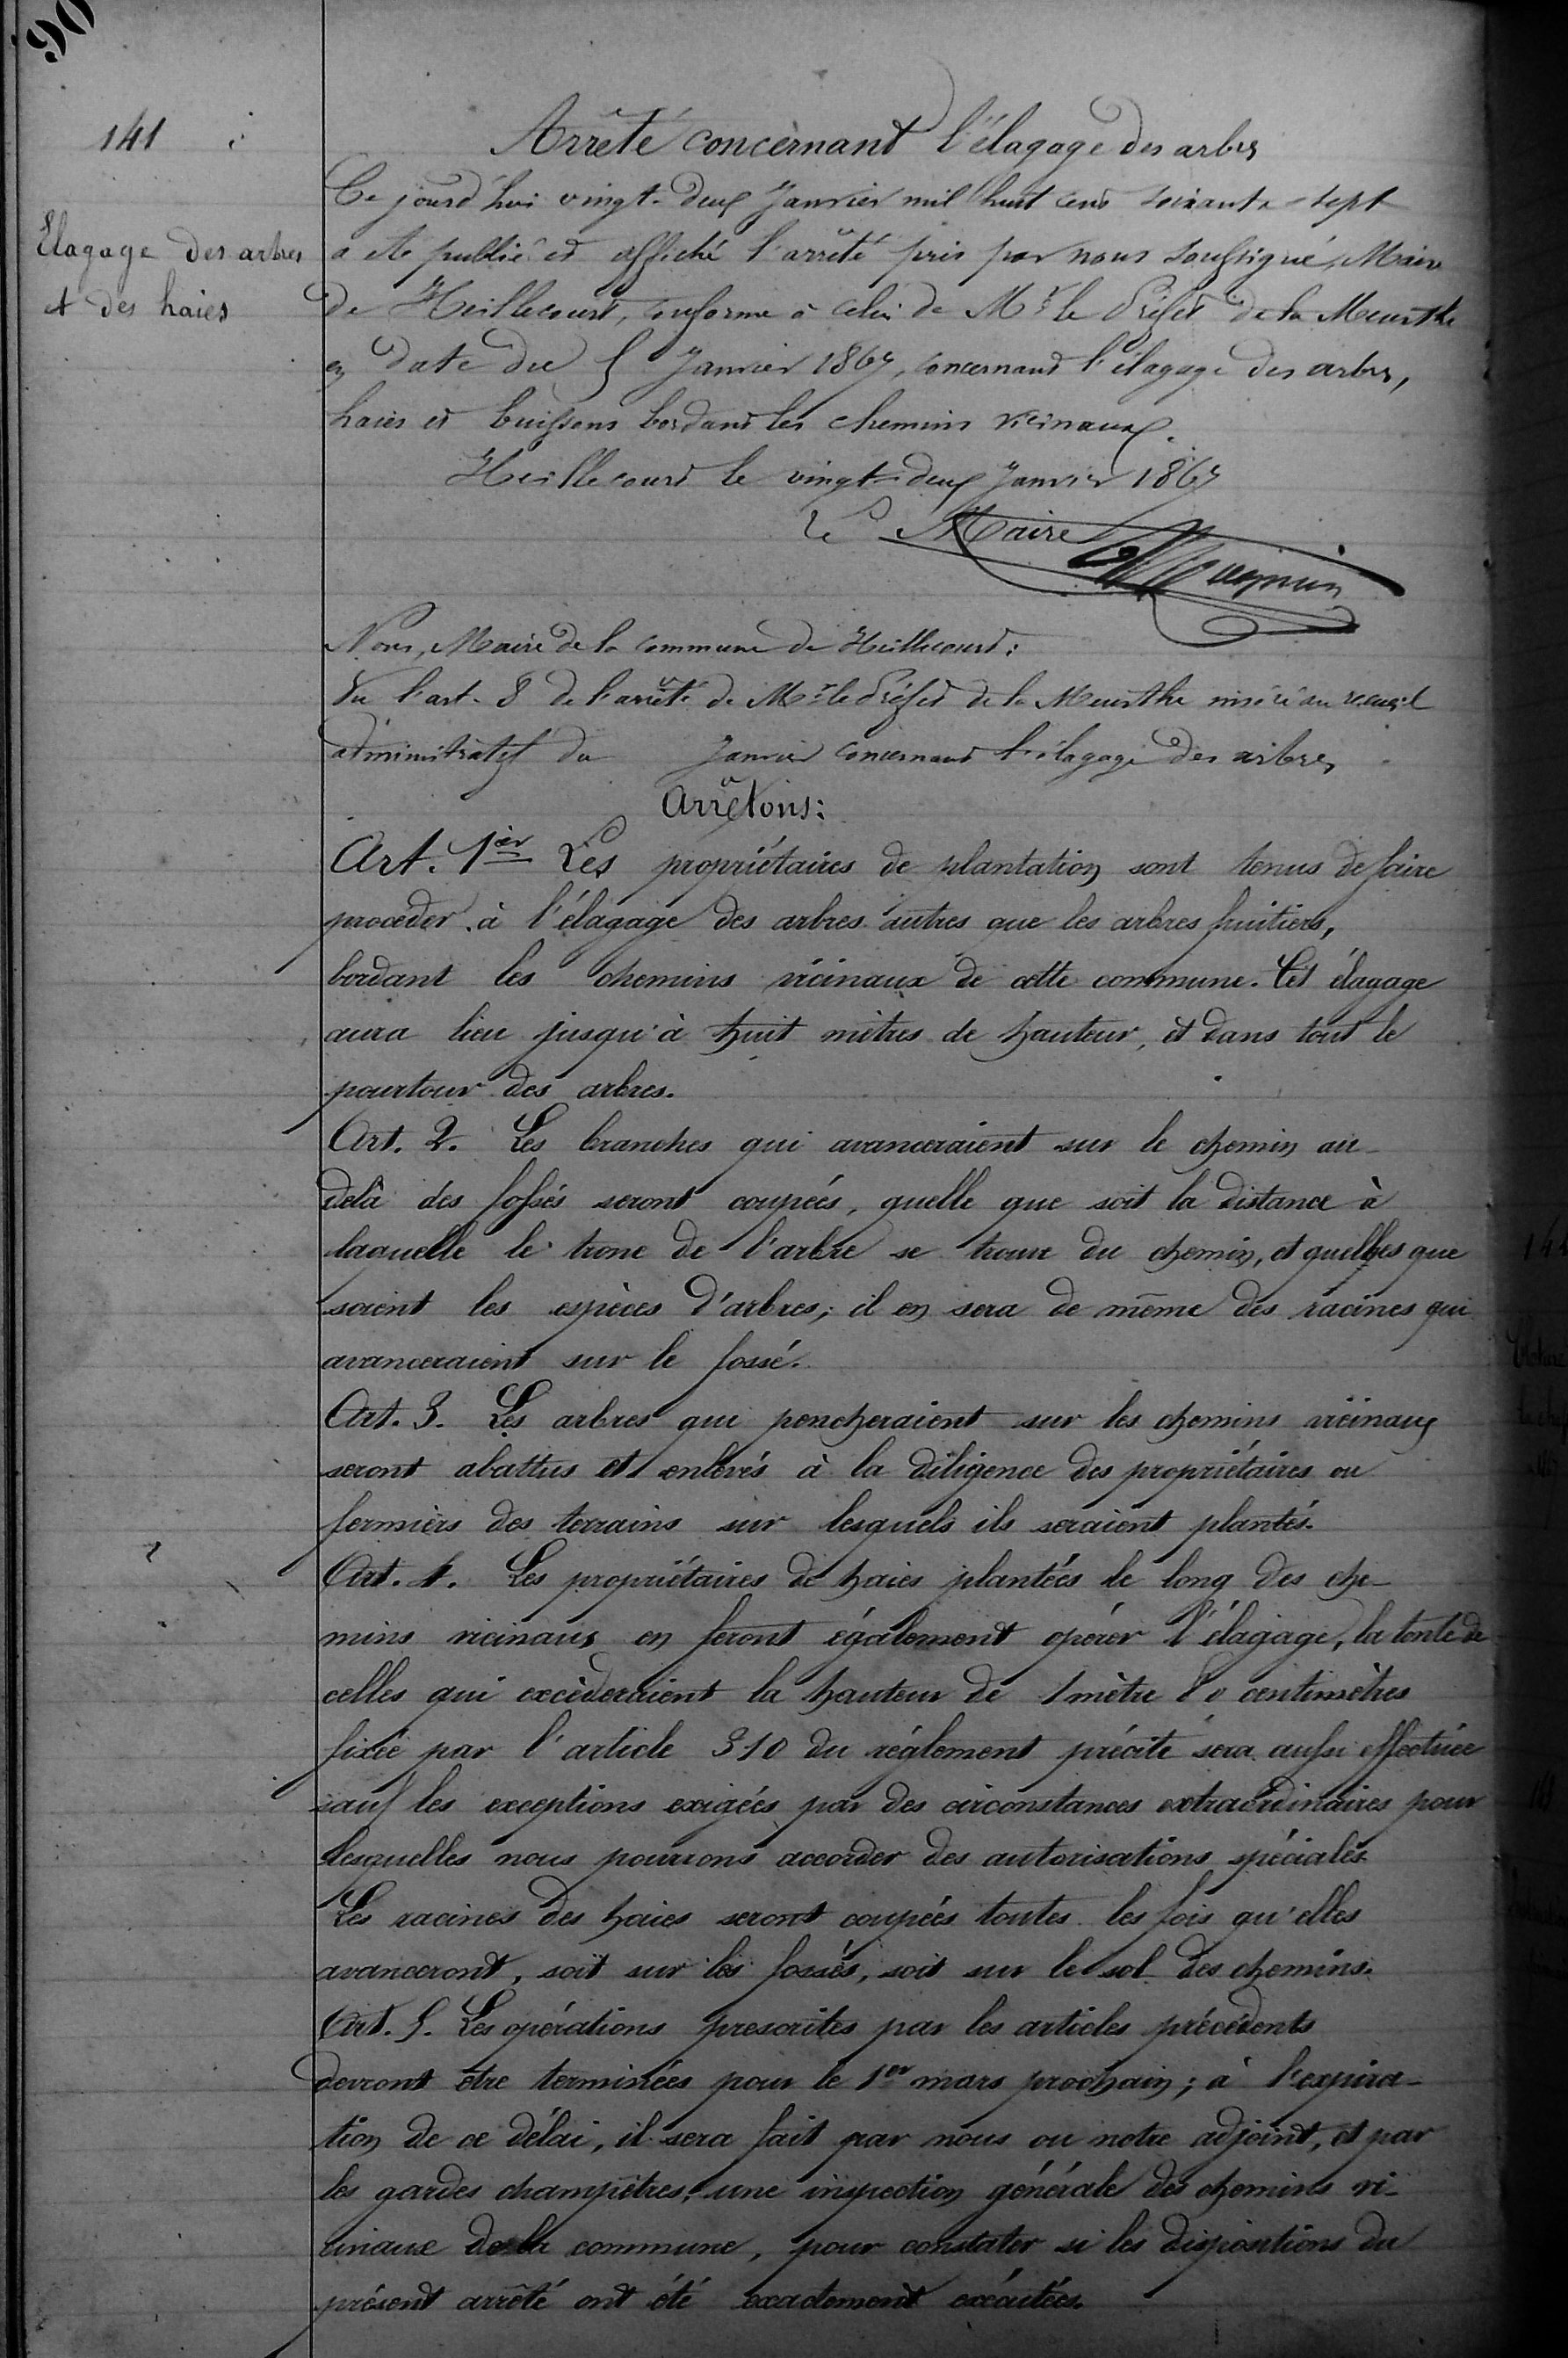 90
141
Elagage des arbres
et des haies
Arrêté concernant l'élagage des arbres
Ce jourd'hui vingt-deux Janvier mil huit cent soixante-sept
a été publié et affiché l'arrêté pris par nous soussigné, Maire
de Heillecourt, conforme à celui de Mr le Préfet de la Meurthe
en date du 5 Janvier 1867, concernant l'élagage des arbres,
haies et buissons bordant les chemins vicinaux.
Heillecourt le vingt-deux Janvier 1867
Le Maire
Nous, Maire de la commune de Heillecourt:
Vu l'art. 8 de l'arrêté de Mr le Préfet de la Meurthe inséré au recueil
administratif du Janvier concernant l'élagage des arbres
Arrêtons:
Art. 1er Les propriétaires de plantation sont tenus de faire
procéder à l'élagage des arbres autres que les arbres fruitiers,
bordant les chemins vicinaux de cette commune. Cet élagage
aura lieu jusqu'à huit mètres de hauteur, et dans tout le
pourtour des arbres.
Art. 2. Les branches qui avanceraient sur le chemin au-
delà des fossés seront coupées, quelle que soit la distance à
laquelle le tronc de l'arbre se trouve du chemin, et quelles que
soient les espèces d'arbres; il en sera de même des racines qui
avanceraient sur le fossé.
Art. 3. Les arbres qui pencheraient sur les chemins vicinaux
seront abattus et enlevés à la diligence des propriétaires ou
fermiers des terrains sur lesquels ils seraient plantés.
Art. 4. Les propriétaires de haies plantées le long des che-
mins vicinaux en feront également opérer l'élagage, la tonte de
celles qui excèderaient la hauteur de 1 mètre 80 centimètres
fixée par l'article 310 du règlement précité sera aussi effectuée
sauf les exceptions exigées par des circonstances extraordinaires pour
lesquelles nous pourrons accorder des autorisations spéciales.
Les racines des haies seront coupées toutes les fois qu'elles
avanceront, soit sur les fossés, soit sur le sol des chemins.
Art. 5. Les opérations prescrites par les articles précédents
devront être terminées pour le 1er mars prochain; à l'expira-
tion de ce délai, il sera fait par nous ou notre adjoint, et par
les gardes champêtres, une inspection générale des chemins vi-
cinaux de la commune, pour constater si les dispositions du
présent arrêté ont été exactement exécutées.